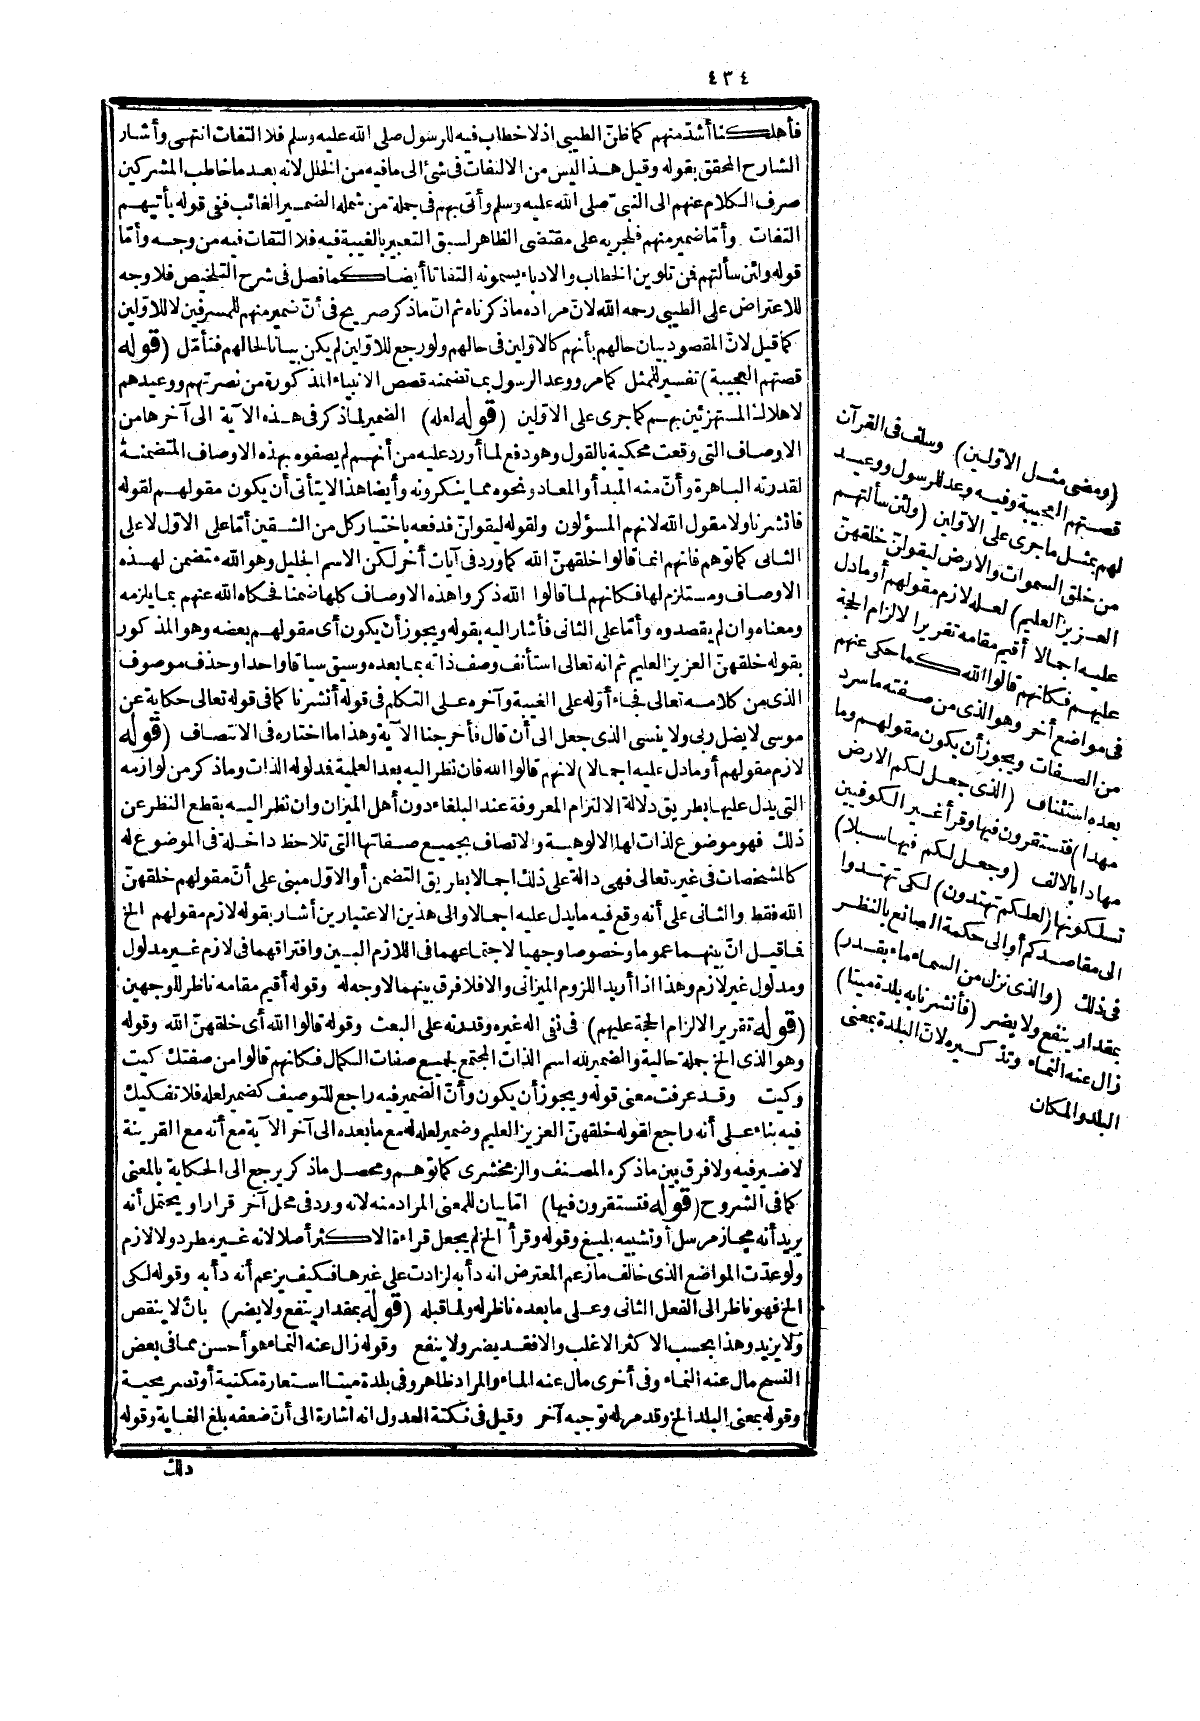 ٤٣٤
فأهلكنا أشدّ منهم كما ظنّ الطيبى اذ لا خطاب فيه للرسول صلى الله عليه وسلم فلا التفات انتهى وأشار
الشارح المحقق بقوله وقيل هذا ليس من الالتفات فى شئ الى ما فيه من الخلل لانه بعد ما خاطب المشركين
صرف الكلام عنهم الى النبىّ صلى الله عليه وسلم وأتى بهم فى جملة من شمله الضمير الغائب ففى قوله يأتيهم
التفات وأمّا ضمير منهم فلجريه على مقتضى الظاهر لسبق التعبير بالغيبة فيه فلا التفات فيه من وجه وأمّا
قوله ولئن سألتهم فمن تلوين الخطاب والادباء يسمونه التفاتا أيضا كما فصل فى شرح التلخيص فلا وجه
للاعتراض على الطيبى رحمه الله لانّ مراده ماذكرناه ثم انّ ماذكر صريح فى أنّ ضمير منهم للمسرفين لا للاوّلين
كما قيل لانّ المقصود بيان حالهم بأنهم كالاوّلين فى حالهم ولو رجع للاوّلين لم يكن بيانا لحالهم فتأمّل (قوله
قصتهم العجيبة) تفسير للمثل كما مر ووعد الرسول بما تضمنه قصص الانبياء المذكورة من نصرتهم ووعيدهم
لاهلاك المستهزئين بهم كما جرى على الاوّلين (قوله لعله) الضمير لما ذكر فى هذه الآية الى آخرها من
الاوصاف التى وقعت محكية بالقول وهو دفع لما أورد عليه من أنهم لم يصفوه بهذه الاوصاف المتضمنة
لقدرته الباهرة وأنّ منه المبدأ والمعاد ونحوه مما ينكرونه وأيضا هذا لا يتأتى أن يكون مقولهم لقوله
فأنشرنا ولا مقول الله لانهم المسؤلون ولقوله ليقولنّ فدفعه باختيار كل من الشقين أمّا على الاوّل لا على
الثانى كما توهم فانهم انما قالوا خلقهنّ الله كما ورد فى آيات أخر لكن الاسم الجليل وهو الله متضمن لهذه
الاوصاف ومستلزم لها فكانهم لما قالوا الله ذكروا هذه الاوصاف كلها ضمنا فحكاه الله عنهم بما يلزمه
ومعناه وان لم يقصدوه وأمّا على الثانى فأشار اليه بقوله ويجوز أن يكون أى مقولهم بعضه وهو المذكور
بقوله خلقهنّ العزيز العليم ثم انه تعالى استأنف وصف ذاته بما بعده وسيق سياقا واحدا وحذف موصوف
الذى من كلامه تعالى فجاء أوّله على الغيبة وآخره على التكلم فى قوله أنشرنا كما فى قوله تعالى حكاية عن
موسى لا يضل ربى ولا ينسى الذى جعل الى أن قال فأخرجنا الآية وهذا ما اختاره فى الانتصاف (قوله
لازم مقولهم أو مادل عليه اجمالا) لانهم قالوا الله فان نظر اليه بعد العلمية فمدلوله الذات وماذكر من لوازمه
التى يدل عليها بطريق دلالة الالتزام المعروفة عند البلغاء دون أهل الميزان وان نظر اليه بقطع النظر عن
ذلك فهو موضوع لذات لها الالوهية والاتصاف بجميع صفاتها التى تلاحظ داخلة فى الموضوع له
كالمشخصات فى غيره تعالى فهى دالة على ذلك اجمالا بطريق التضمن أو الاوّل مبنى على أنّ مقولهم خلقهنّ
الله فقط والثانى على أنه وقع فيه مايدل عليه اجمالا والى هذين الاعتبارين أشار بقوله لازم مقولهم الخ
فاقيل انّ بينهما عموما وخصوصا وجهيا لاجتماعهما فى اللازم البين وافتراقهما فى لازم غير مدلول
ومدلول غير لازم وهذا اذا أريد اللزوم الميزانى والا فلا فرق بينهما لا وجه له وقوله أقيم مقامه ناظر للوجهين
(قوله تقريرا لالزام الحجة عليهم) فى نفى اله غيره وقدرته على البعث وقوله قالوا الله أى خلقهنّ الله وقوله
وهو الذى الخ جملة حالية والضمير لله اسم الذات المجتمع لجميع صفات الكمال فكانهم قالوا من صفتك كيت
وكيت وقد عرفت معنى قوله ويجوز أن يكون وأنّ الضمير فيه راجع للتوصيف كضمير لعله فلا تفكيك
فيه بناء على أنه راجع لقوله خلقهنّ العزيز العليم وضمير لعله له مع ما بعده الى آخر الآية مع أنه مع القرينة
لا ضير فيه ولا فرق بين ماذكره المصنف والزمخشرى كما توهم ومحصل ماذكر يرجع الى الحكاية بالمعنى
كما فى الشروح (قوله فتستقرون فيها) امّا بيان للمعنى المراد منه لانه ورد فى محل آخر قرارا ويحتمل أنه
يريد أنه مجاز مرسل أو تشبيه بليغ وقوله وقرأ الخ لم يجعل قراءة الاكثر أصلا لانه غير مطرد ولا لازم
ولو عدّت المواضع الذى خالف ما زعم المعترض انه دأبه لزادت على غيرها فكيف يزعم أنه دأبه وقوله لكى
الخ فهو ناظر الى الفعل الثانى وعلى ما بعده ناظر له ولما قبله (قوله بمقدار ينفع ولا يضر) بأن لا ينقص
ولا يزيد وهذا بحسب الاكثر الاغلب والا فقد يضر ولا ينفع وقوله زال عنه النماء هو أحسن مما فى بعض
النسخ مال عنه النماء وفى أخرى مال عنه الماء والمراد ظاهر وفى بلدة ميتا استعارة مكنية أو تصريحية
وقوله بمعنى البلد الخ وقد مر له توجيه آخر وقيل فى نكتة العدول انه اشارة الى أنّ ضعفه بلغ الغاية وقوله
ذلك
(ومضى مثل الاوّلين) وسلف فى القرآن
قصتهم العجيبة وفيه وعد للرسول ووعيد
لهم بمثل ما جرى على الاوّلين (ولئن سألتهم
من خلق السموات والارض ليقولنّ خلقهنّ
العزيز العليم) لعله لازم مقولهم أو مادل
عليه اجمالا أقيم مقامه تقريرا لالزام الحجة
عليهم فكانهم قالوا الله كما حكى عنهم
فى مواضع أخر وهو الذى من صفته ماسرد
من الصفات ويجوز أن يكون مقولهم وما
بعده استئناف (الذى جعل لكم الارض
مهدا) فتستقرون فيها وقرأ غير الكوفيين
مهادا بالالف (وجعل لكم فيها سبلا)
تسلكونها (لعلكم تهتدون) لكى تهتدوا
الى مقاصدكم أو الى حكمة الصانع بالنظر
فى ذلك (والذى نزل من السماء ماء بقدر)
بمقدار ينفع ولا يضر (فأنشرنا به بلدة ميتا)
زال عنه النماء وتذكيره لانّ البلدة بمعنى
البلد والمكان